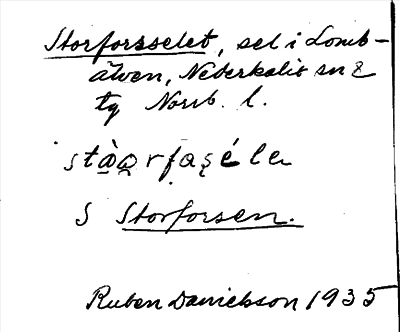 Storforsselet, sel i Lomb-
älven, Nederkalix sn &
tg Norrb. l.
stàa̯rfaşéleɴ
S Storforsen.
Ruben Danielsson 1935